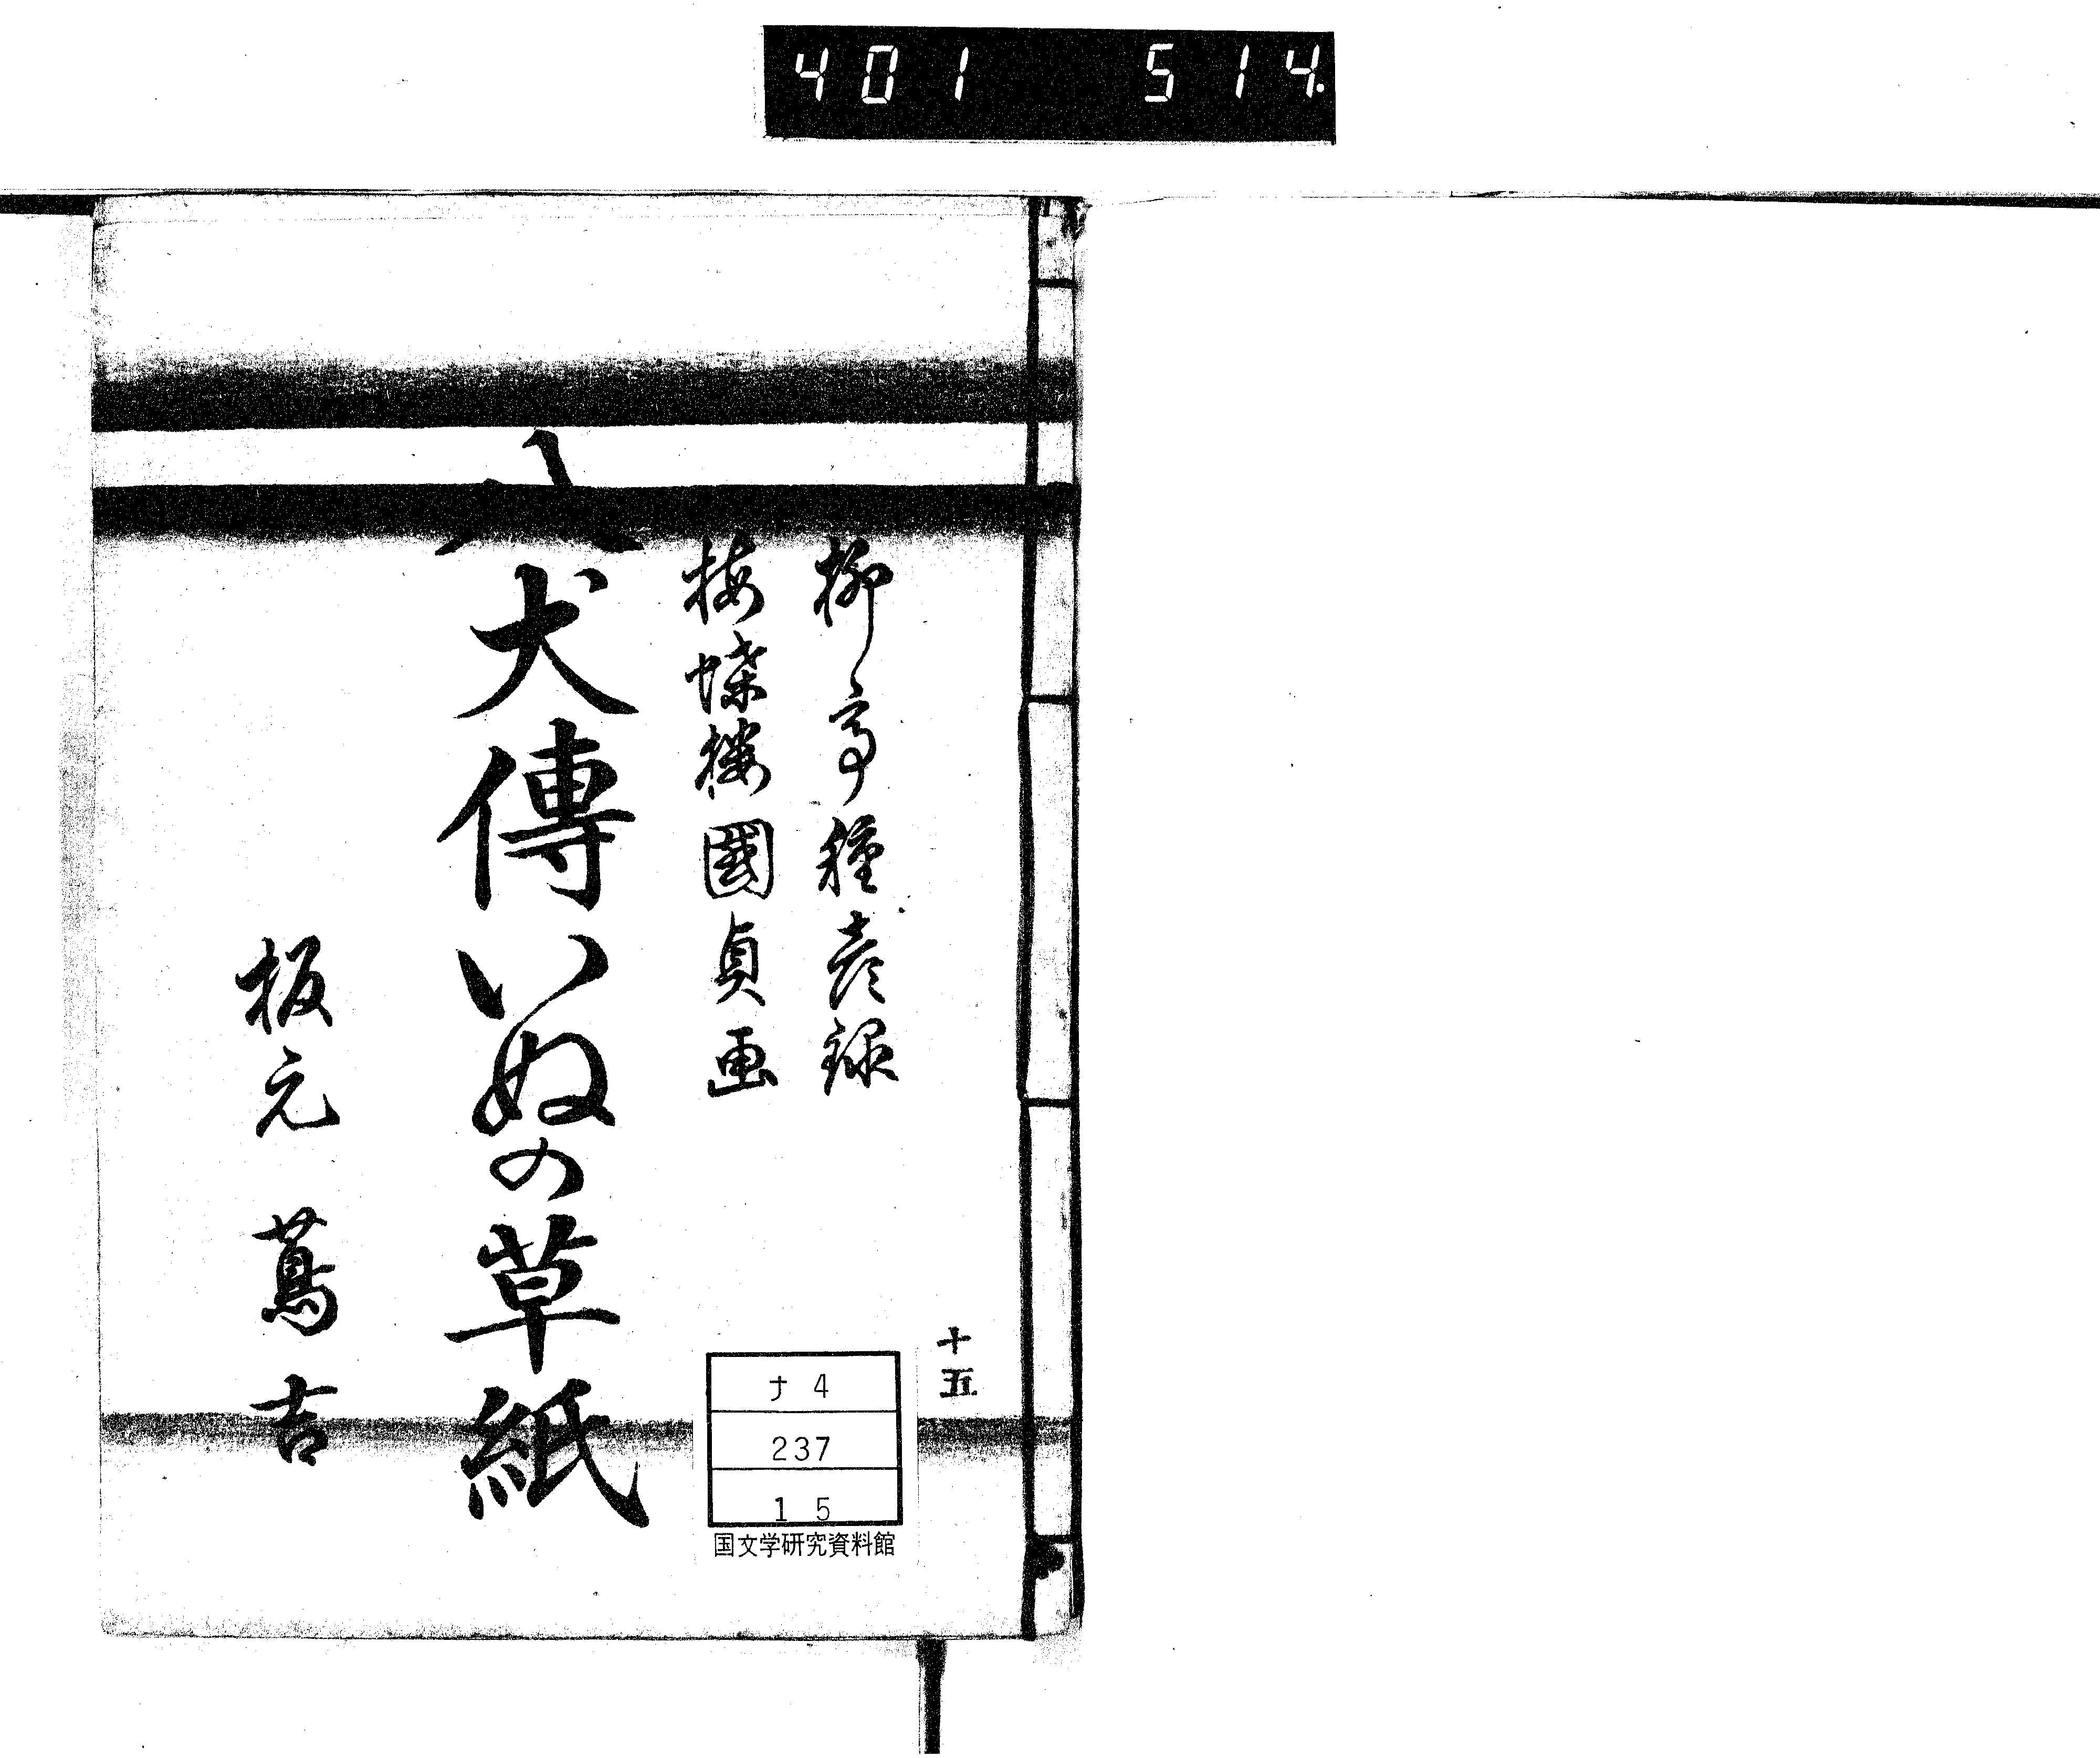 401 514.
柳亭種彦録
梅蝶樓國貞画
八犬傳いぬの草紙
板元 蔦吉
十五
ナ4
237
15
国文学研究資料館